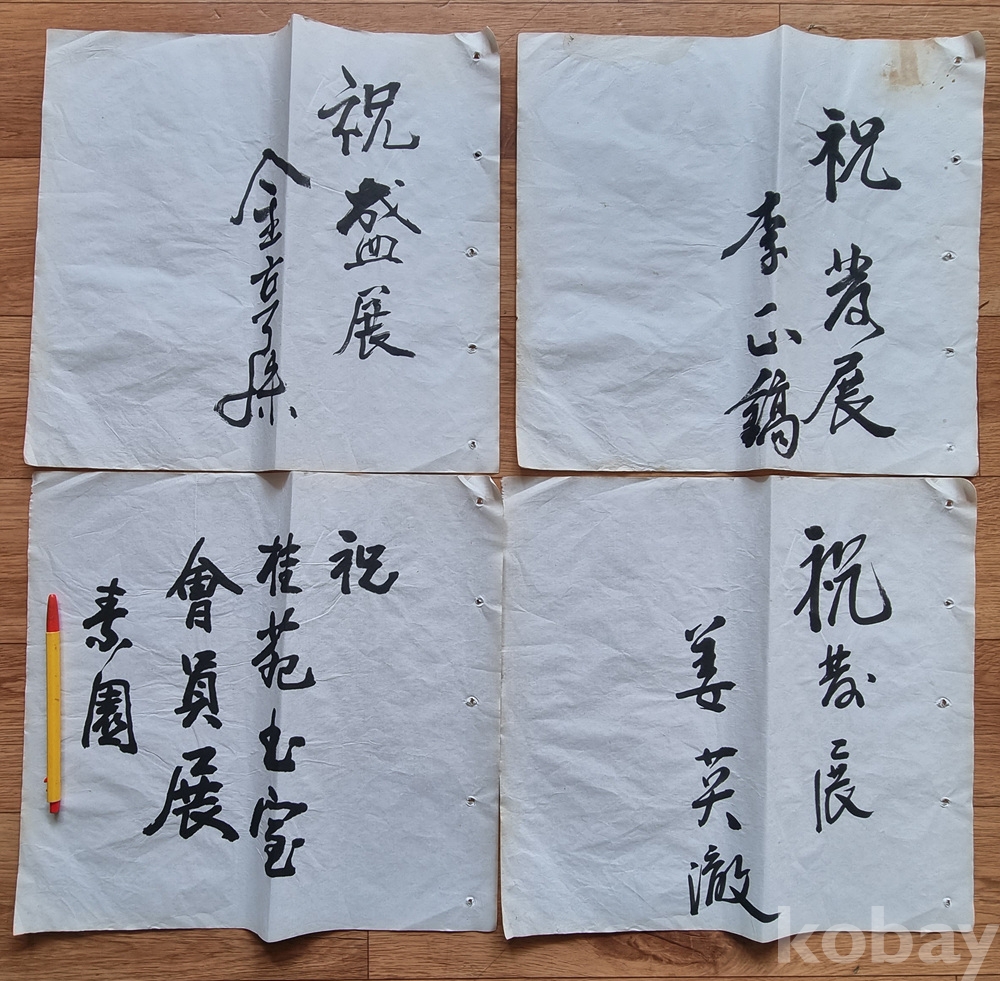 祝盛展
金亨孫
祝發展
李正鎬
祝
桂苑書室
會員展
素園
祝發展
姜英澈
kobay